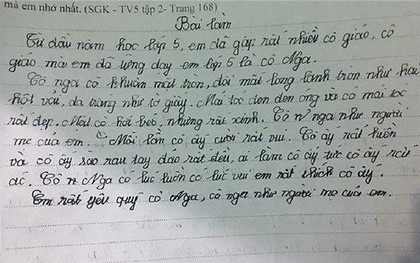 mà em nhớ nhất. (SGK - TV5 tập 2- Trang 168)
Bài làm
Từ đầu năm học lớp 5, em đã gặp rất nhiều cô giáo, cô
giáo mà em đã từng dạy em lớp 5 là cô Nga.
Cô nga có khuôn mặt tròn, đôi mắt long lanh tròn như hai
hột vải, da trắng như tờ giấy. Mái tóc đen đen óng và có mái tóc
rất đẹp. Mắt cô hơi béo, nhưng rất xinh. Cô nga như người
mẹ của em. Mỗi lần cô ấy cười rất vui. Cô ấy rất hiền
và cô ấy sao rau tay dao rất đều, ai làm cô ấy tức cô ấy rất
ác. Cô Nga có lúc buồn có lúc vui em rất thích cô ấy.
Em rất yêu quý cô Nga, cô nga như người mẹ của em.